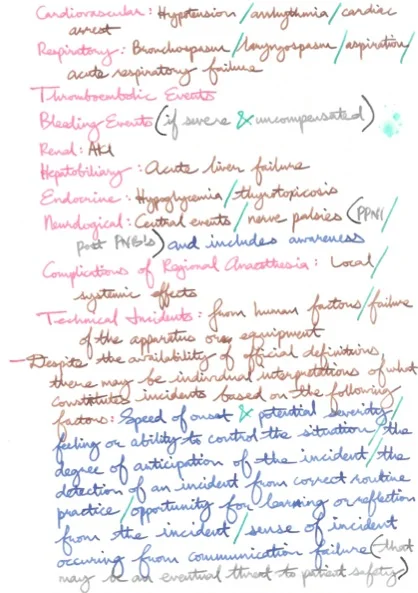 Cardiovascular: Hypotension/arrhythmia/cardiac
arrest
Respiratory: Bronchospasm/laryngospasm/aspiration/
acute respiratory failure
Thromboembolic Events
Bleeding Events (if severe & uncompensated)
Renal: AKI
Hepatobiliary: Acute liver failure
Endocrine: Hypoglycemia/thyrotoxicosis
Neurological: Central events/nerve palsies (PPNI/
post PNB's) and includes awareness
Complications of Regional Anaesthesia: Local/
systemic effects
Technical Incidents: from human factors/failure
of the apparatus or equipment
- Despite the availability of official definitions,
there may be individual interpretations of what
constitutes incidents based on the following
factors: Speed of onset & potential severity/
feeling or ability to control the situation/the
degree of anticipation of the incident/the
detection of an incident from correct routine
practice/opportunity for learning or reflection
from the incident/sense of incident
occuring from communication failure (that
may be an eventual threat to patient safety)